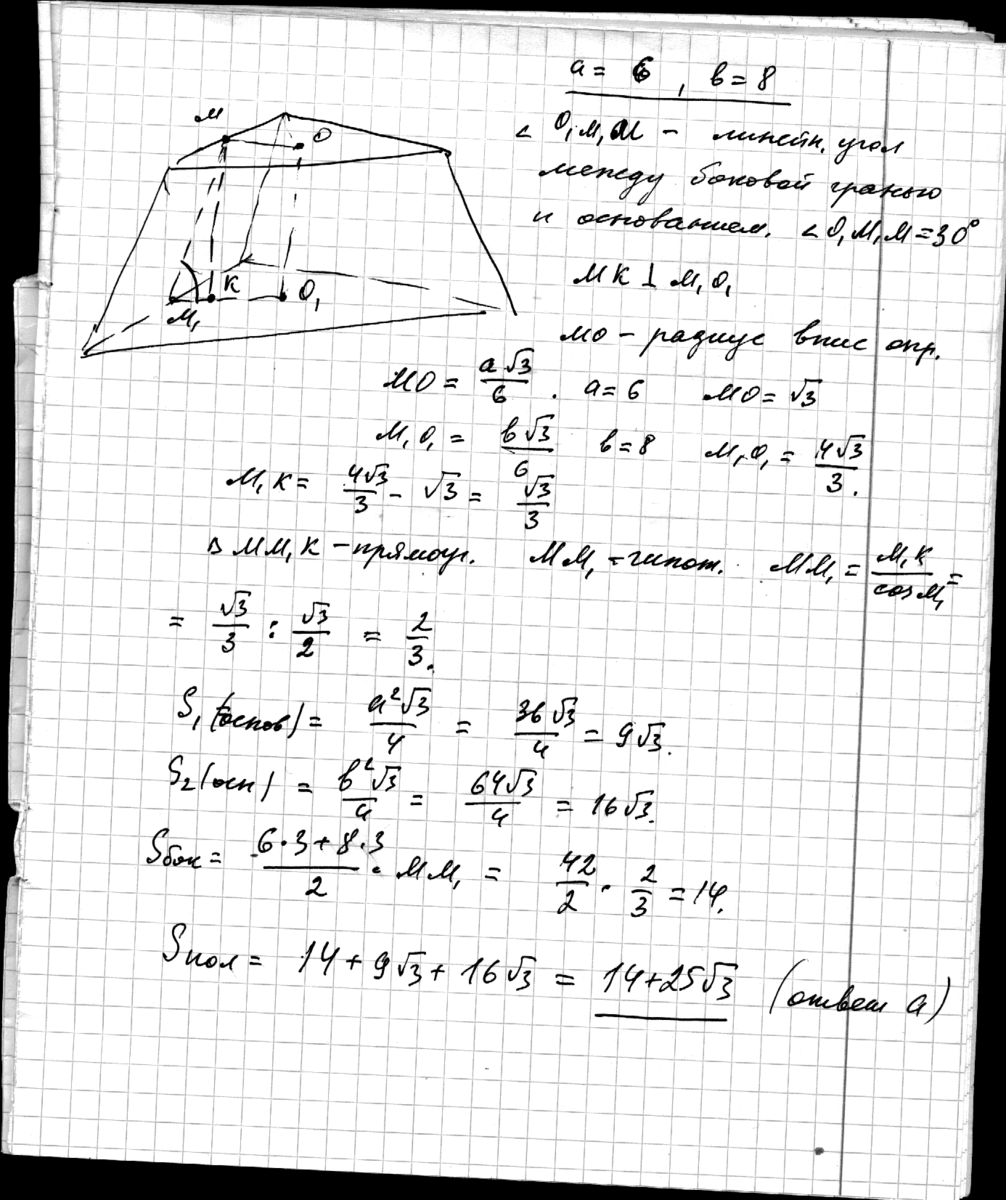 a = 6 , в = 8
∠ O₁M₁M - линейн. угол
между боковой гранью
и основанием. ∠ O₁M₁M = 30°
MK ⊥ M₁O₁
MO - радиус впис окр.
MO = a√3/6 . a = 6 MO = √3
M₁O₁ = в√3/6 в = 8 M₁O₁ = 4√3/3.
M₁K = 4√3/3 - √3 = √3/3
Δ MM₁K - прямоуг. MM₁ - гипот. MM₁ = M₁K/cosM₁ =
= √3/3 : √3/2 = 2/3.
S₁(основ) = a²√3/4 = 36√3/4 = 9√3.
S₂(осн) = в²√3/4 = 64√3/4 = 16√3.
Sбок = 6·3+8·3/2 · MM₁ = 42/2 · 2/3 = 14.
Sпол = 14 + 9√3 + 16√3 = 14+25√3 (ответ а)
M
O
K
O₁
M₁